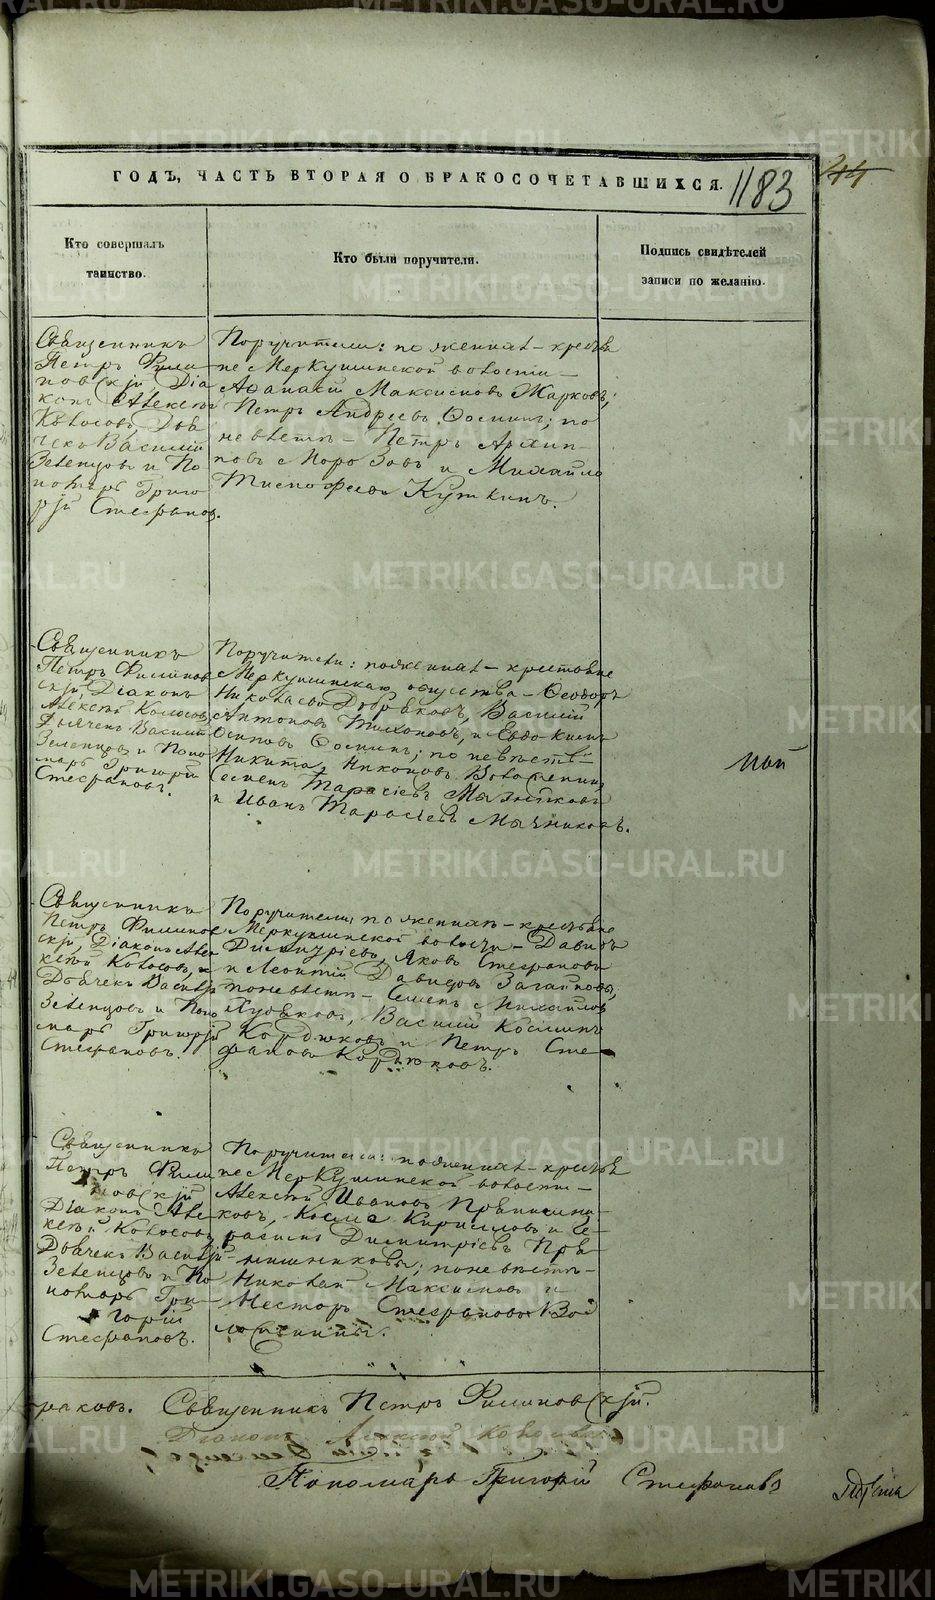 ГОДЪ, ЧАСТЬ ВТОРАЯ О БРАКОСОЧЕТАВШИХСЯ.
1183
44
Кто совершалъ
таинство.
Кто были поручители.
Подпись свидѣтелей
записи по желанію.
Священникъ
Петръ Фили
повскій, Діа
конъ Алексѣй
Колосовъ, Дья
чекъ Василій
Зеленцовъ и По
номарь Григо
рій Стефановъ.
Поручители: по женихѣ – крестья
не Меркушинской волости –
Аѳанасій Максимовъ Жарковъ,
Петръ Андреевъ Осминъ; по
невѣстѣ – Петръ Архип-
повъ Морозовъ и Михайло
Тимофеевъ Куткинъ.
Священникъ
Петръ Филипов
скій, Діаконъ
Алексѣй Колосовъ,
Дьячекъ Василій
Зеленцовъ и Поно
марь Григорій
Стефановъ.
Поручители: по женихѣ – крестьяне
Меркушинскаго общества – Ѳеодоръ
Николаевъ Василій
Антоновъ Тихоновъ, и Евдокимъ
Осиповъ Осминъ; по невѣстѣ –
Никита Никоновъ
Семенъ Тарасіевъ Мячниковъ
и Иванъ Тарасіевъ Мячниковъ.
Май
Священникъ
Петръ Филипов
скій, Діаконъ Але
ксѣй Колосовъ, и
Дьячекъ Василій
Зеленцовъ и Поно
марь Григорій
Стефановъ.
Поручители: по женихѣ – крестьяне
Меркушинской волости – Давидъ
Димитріевъ, Яковъ Стефановъ
и Леонтій Давидовъ Загайновы,
по невѣстѣ – Семенъ Михайловъ
Худяковъ, Василій Косминъ
Кордюковъ и Петръ Сте
фановъ Кордюковъ.
Священникъ
Петръ Фили
повскій
Діаконъ Але
ксѣй Колосовъ
Дьячекъ Василій
Зеленцовъ и По
номарь Гри-
горій
Стефановъ.
Поручители: по женихѣ – крестья
не Меркушинской волости –
Алексѣй Ивановъ
ковъ, Косма Кирилловъ и Ге-
расимъ Димитріевъ
по невѣстѣ –
Николай Максимовъ и
Несторъ Стефановъ
браковъ. Священникъ Петръ Филиповскій.
Діаконъ Алексѣй Колосовъ
Пономарь Григорій Стефановъ
METRIKI.GASO-URAL.RU